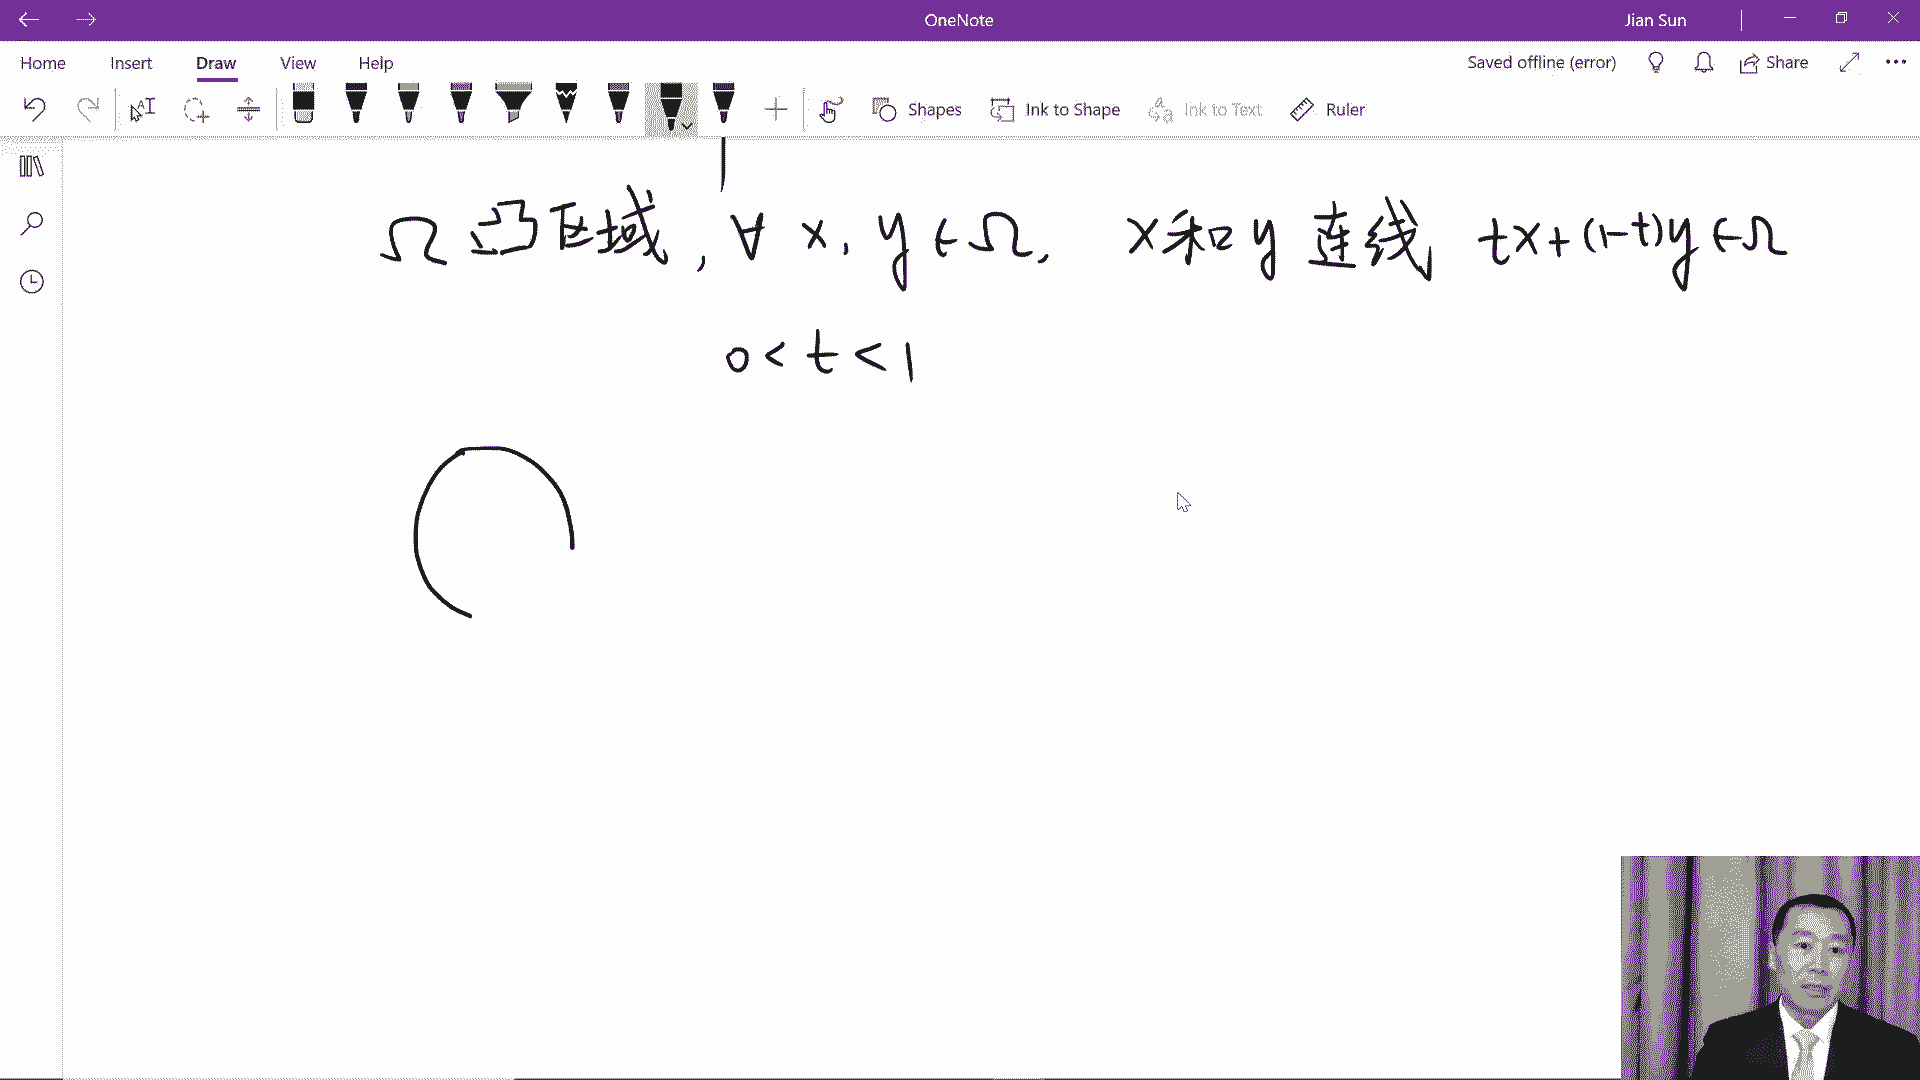 OneNote
Jian Sun
Home Insert Draw View Help
Saved offline (error) Share
Shapes Ink to Shape Ink to Text Ruler
Ω 凸区域, ∀ x, y ∈ Ω, x和y 连线 tx+(1-t)y ∈ Ω
0 < t < 1